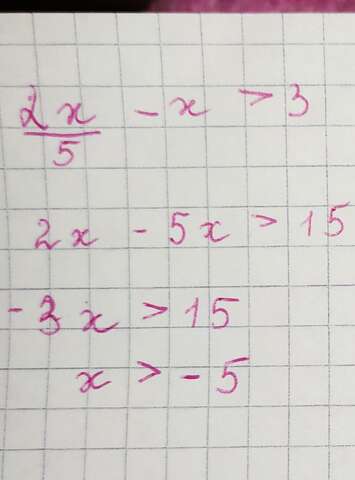 2x/5 - x > 3
2x - 5x > 15
-3x > 15
x > -5